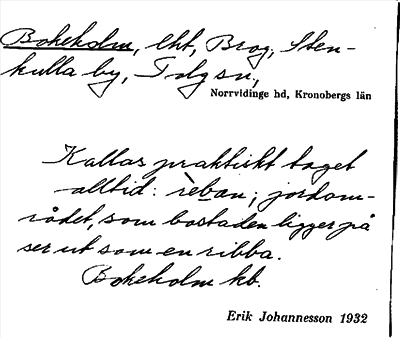 Bokeholm, lht, Brog, Sten-
kulla by, Tolg sn,
Norrvidinge hd, Kronobergs län
Kallas praktiskt taget
alltid: reban; jordom-
rådet, som bostaden ligger på
ser ut som en ribba.
Bokeholm kb.
Erik Johannesson 1932